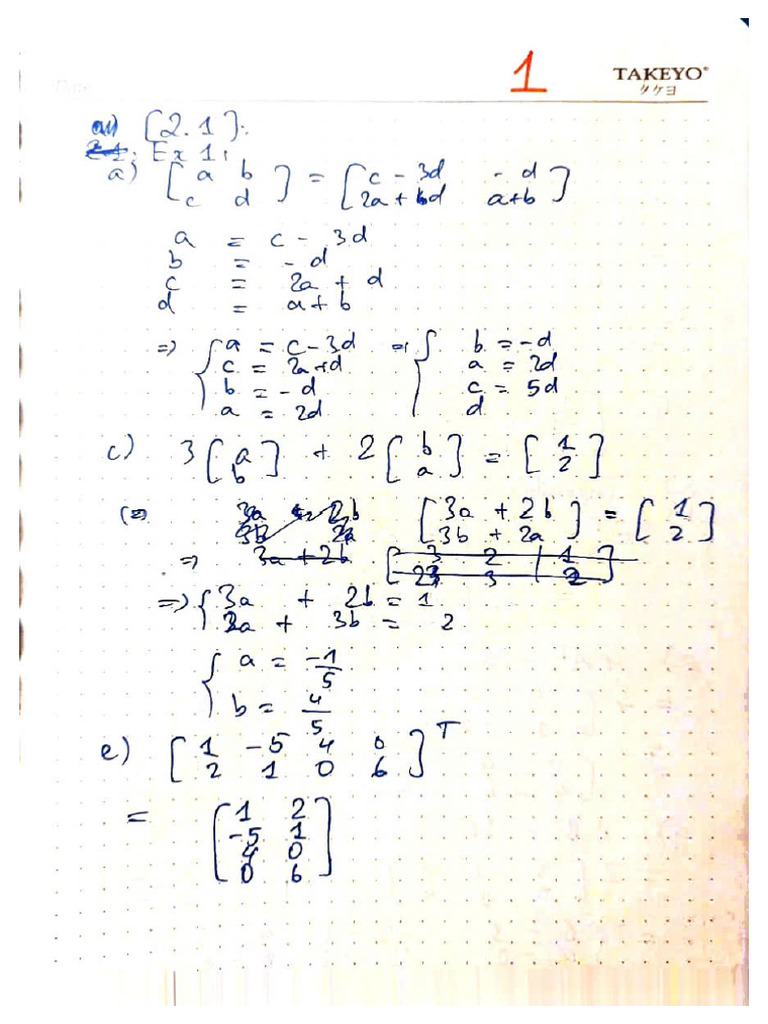 1 TAKEYO®
タケヨ
[2.1].
Ex 1:
a) [a b; c d] = [c - 3d -d; 2a + d a+b]
a = c - 3d
b = -d
c = 2a + d
d = a + b
=> { a = c - 3d => { b = -d
c = 2a+d a = 2d
b = -d c = 5d
a = 2d d
c) 3 [a; b] + 2 [b; a] = [1; 2]
(=) [3a + 2b; 3b + 2a] = [1; 2]
=> 3a + 2b [3 2 | 1; 2 3 2]
=> { 3a + 2b = 1
2a + 3b = 2
{ a = -1/5
b = 4/5
e) [1 -5 4 0; 2 1 0 6]^T
= [1 2; -5 1; 4 0; 0 6]